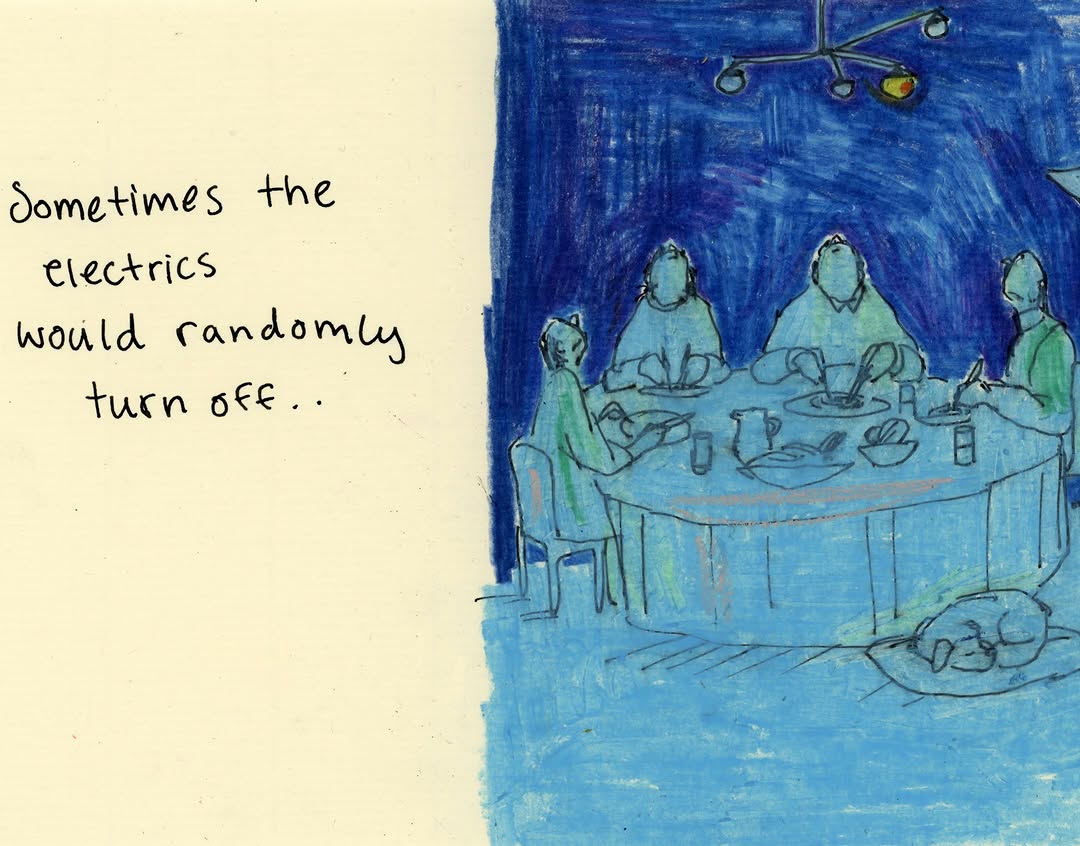 Sometimes the
electrics
would randomly
turn off..